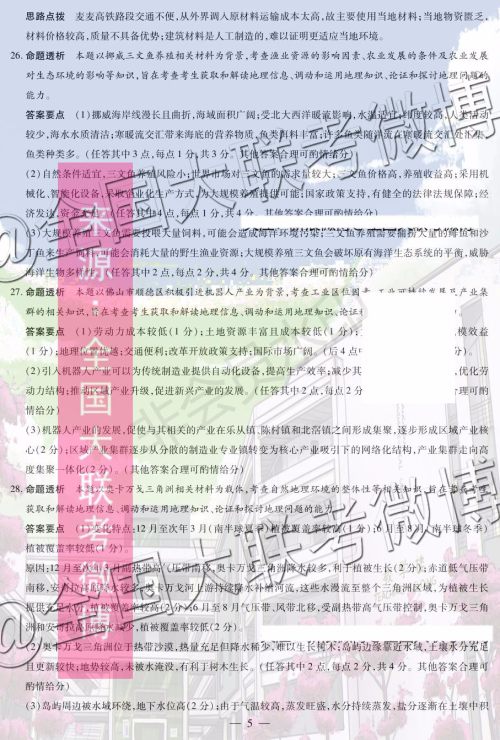 思路点拨 麦麦高铁路段交通不便,从外界调入原材料运输成本太高,故主要使用当地材料;当地物资匮乏,
材料价格较高,质量不具备优势;建筑材料是人工制造的,难以证明更适应当地环境。
26. 命题透析 本题以挪威三文鱼养殖相关材料为背景,考查渔业资源的影响因素、农业发展的条件及农业发展
对生态环境的影响等知识,旨在考查考生获取和解读地理信息、调动和运用地理知识、论证和探讨地理问题的
能力。
答案要点 (1)挪威海岸线漫长且曲折,海域面积广阔;受北大西洋暖流影响,水温适宜;纬度较高,人类活动
较少,海水水质清洁;寒暖流交汇带来海底的营养物质,鱼类饵料丰富;许多鱼类随洋流在寒暖流交汇处汇集,
鱼类种类多。(任答其中3点,每点1分,共3分。其他答案合理可酌情给分)
(2)自然条件适宜,三文鱼养殖风险小;世界市场对三文鱼的需求量较大;三文鱼价格高,养殖收益高;采用机
械化、智能化设备,采取沿业化生产方式,为大规模养殖提供可能;国家政策支持,有健全的法律法规保障;经
济发达,资金 (任答其中4点,每点1分,共4分。其他答案合理可酌情给分)
(3)大规模养殖三文鱼需要投放大量饲料,可能会造成海洋环境污染;三文鱼养殖需要捕捞大量的海鱼和沙
丁鱼来生产饲料,可能会消耗大量的野生渔业资源;大规模养殖三文鱼会破坏原有海洋生态系统的平衡,威胁
海洋生物多样性。(任答其中2点,每点2分,共4分。其他答案合理可酌情给分)
27. 命题透析 本题以佛山市顺德区积极引进机器人产业为背景,考查工业区位因素、工业可持续发展及产业集
群的相关知识,旨在考查考生获取和解读地理信息、调动和运用地理知识、论证
答案要点 (1)劳动力成本较低(1分);土地资源丰富且成本较低(1分); 模效益
(1分);地理位置优越;交通便利;改革开放政策支持;国际市场广阔。(后4点 分)。
(2)引入机器人产业可以为传统制造业提供自动化设备,提高生产效率;减少其 ,优化劳
动力结构;推动区域产业升级,促进新兴产业的发展。(任答其中2点,每点2分 理可酌
情给分)
(3)机器人产业的发展,促使与其相关的产业在乐从镇、陈村镇和北滘镇之间形成集聚,逐步形成区域产业核
心(2分);区域产业集群逐步从分散的制造业专业镇转变为核心产业吸引下的网络化结构,产业集群走向高
度集聚一体化(2分)。(其他答案合理可酌情给分)
28. 命题透析 本题以奥卡万戈三角洲相关材料为载体,考查自然地理环境的整体性等相关知识,旨在考查考生
获取和解读地理信息、调动和运用地理知识、论证和探讨地理问题的能力。
答案要点 (1)变化特点:12月至次年3月(南半球夏季)植被覆盖率较高(1分);6月至8月(南半球冬季)
植被覆盖率较低(1分)。
原因:12月至次年3月,副热带高气压带南移,奥卡万戈三角洲降水较多,利于植被生长(2分);赤道低气压带
南移,安哥拉高原降水较多,奥卡万戈河上游持续降水补给河流,这些水漫流至整个三角洲区域,为植被生长
提供充足水分,植被覆盖率较高(2分);6月至8月气压带、风带北移,受副热带高气压带控制,奥卡万戈三角
洲和安哥拉高原降水减少,植被覆盖率较低(2分)。
(2)奥卡万戈三角洲位于热带沙漠,热量充足但降水稀少,难以生长树木;岛屿边缘靠近水域,土壤水分充足
且更新较快;地势较高,未被水淹没,有利于树木生长。(任答其中2点,每点2分,共4分。其他答案合理可
酌情给分)
(3)岛屿周边被水域环绕,地下水水位高(2分);由于气温较高,蒸发旺盛,水分持续蒸发,盐分逐渐在土壤中积
— 5 —
@全国大联考微博
@全国大联考微博
全国大联考